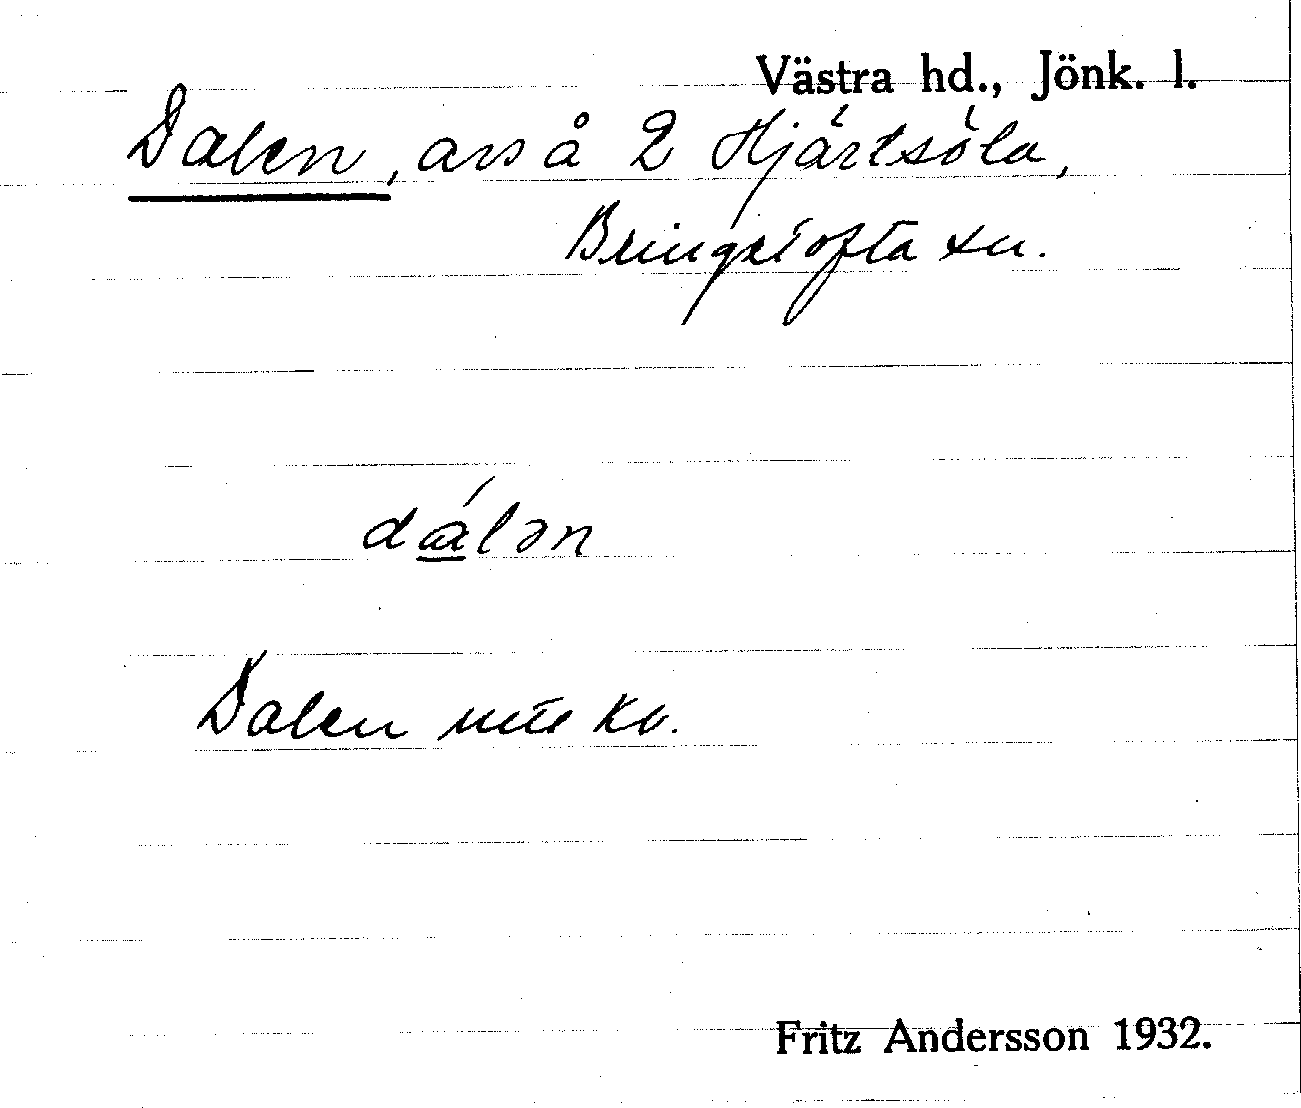 Västra hd., Jönk. l.
Dalen, avs å 2 Hjärtsöla,
Bringetofta sn.
dálən
Dalen
Fritz Andersson 1932.